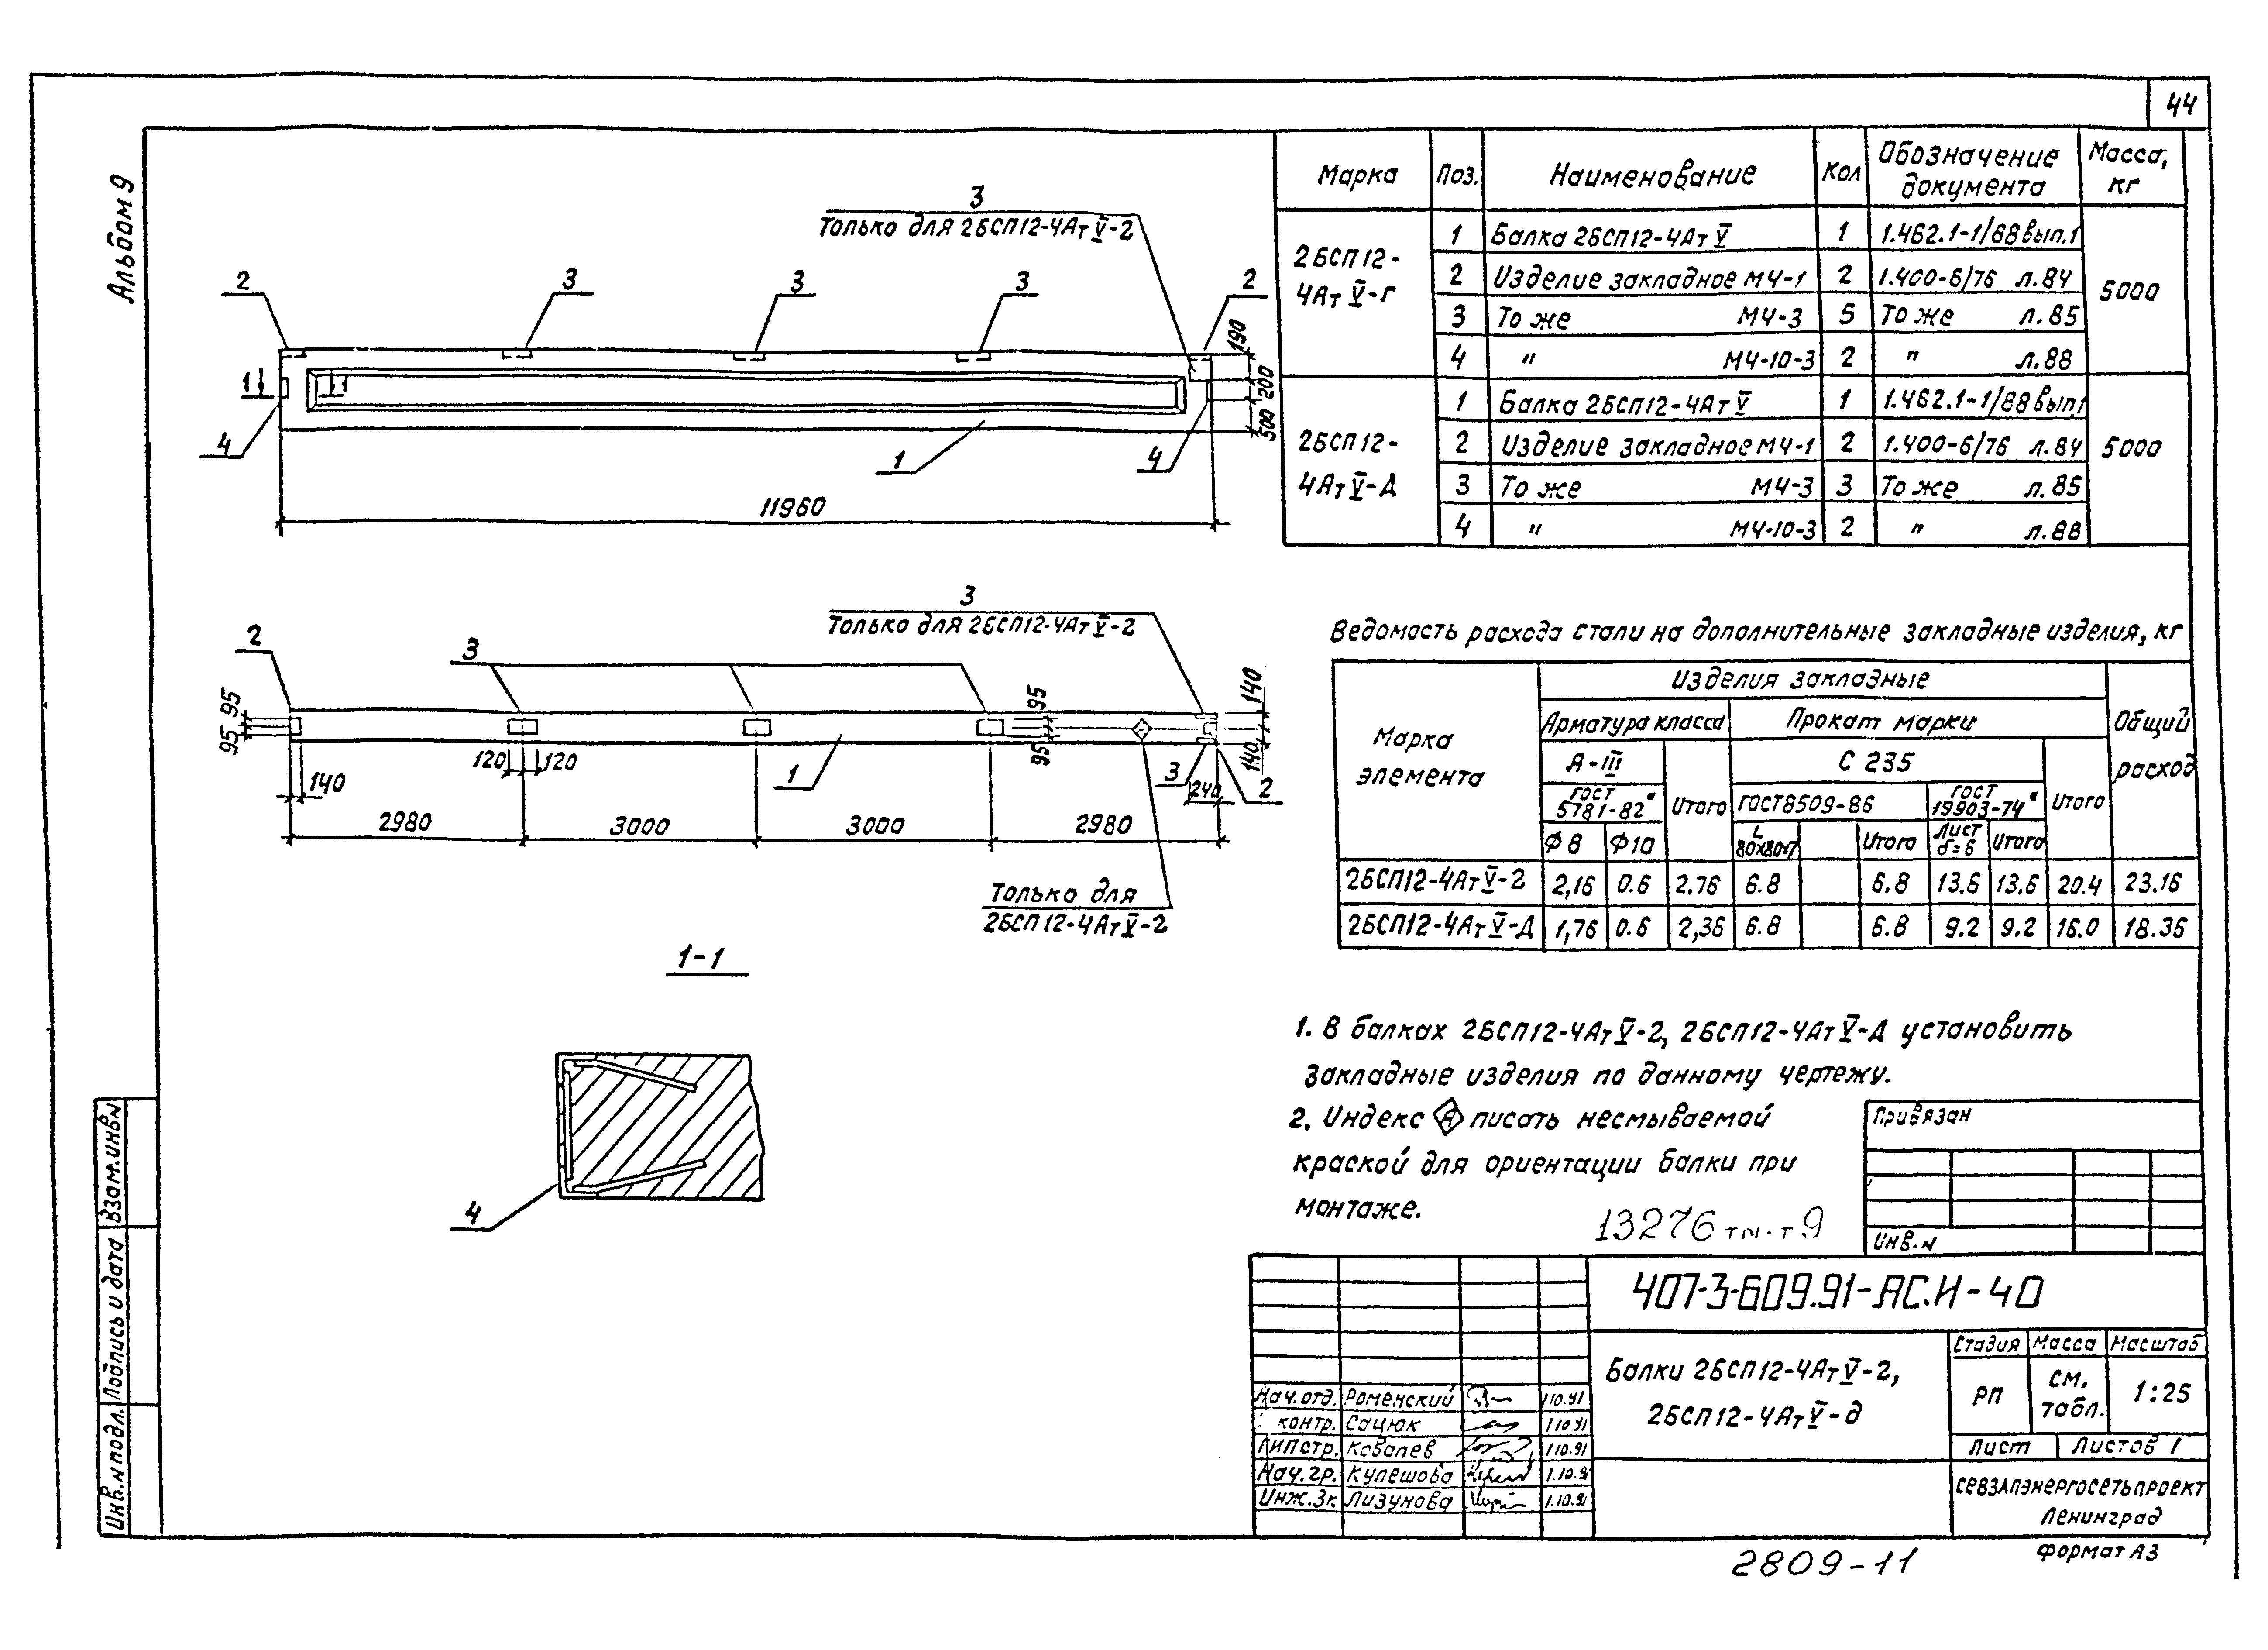 44
Альбом 9
3
Только для 2БСП12-4АтV-2
2
3
3
3
2
190
200
500
1
1
4
1
4
11960
3
Только для 2БСП12-4АтV-2
2
3
95
95
95
95
140
140
140
120
120
1
3
240
2
2980
3000
3000
2980
Только для
2БСП12-4АтV-2
1-1
4
Марка Поз. Наименование Кол Обозначение документа Масса, кг
2БСП12-4АтV-г
1 Балка 2БСП12-4АтV 1 1.462.1-1/88 вып.1 5000
2 Изделие закладное МЧ-1 2 1.400-6/76 л.84
3 То же МЧ-3 5 То же л.85
4 " МЧ-10-3 2 " л.88
2БСП12-4АтV-Д
1 Балка 2БСП12-4АтV 1 1.462.1-1/88 вып.1 5000
2 Изделие закладное МЧ-1 2 1.400-6/76 л.84
3 То же МЧ-3 3 То же л.85
4 " МЧ-10-3 2 " л.88
Ведомость расхода стали на дополнительные закладные изделия, кг
Марка элемента
Изделия закладные
Общий расход
Арматура класса
Прокат марки
А-III
Итого
С 235
Итого
ГОСТ 5781-82*
ГОСТ 8509-86
ГОСТ 19903-74*
Ф8 Ф10 L 80х80х7 Итого Лист б=6 Итого
2БСП12-4АтV-2 2,16 0.6 2.76 6.8 6.8 13.6 13.6 20.4 23.16
2БСП12-4АтV-Д 1,76 0.6 2,36 6.8 6.8 9.2 9.2 16.0 18.36
1. В балках 2БСП12-4АтV-2, 2БСП12-4АтV-Д установить
закладные изделия по данному чертежу.
2. Индекс А писать несмываемой
краской для ориентации балки при
монтаже.
13276 тм-т9
Привязан
Инв.N
407-3-609.91-АС.И-40
Балки 2БСП12-4АтV-2,
2БСП12-4АтV-д
Стадия Масса Масштаб
РП см. табл. 1:25
Лист Листов 1
СЕВЗАПЭНЕРГОСЕТЬПРОЕКТ
Ленинград
Нач.отд. Роменский 1.10.91
контр. Сацюк 1.10.91
ГИП стр. Ковалев 1.10.91
Нач.гр. Кулешова 1.10.91
Инж.3к Лизунова 1.10.91
Формат А3
2809-11
Взам.инв.N
Подпись и дата
Инв.N подл.